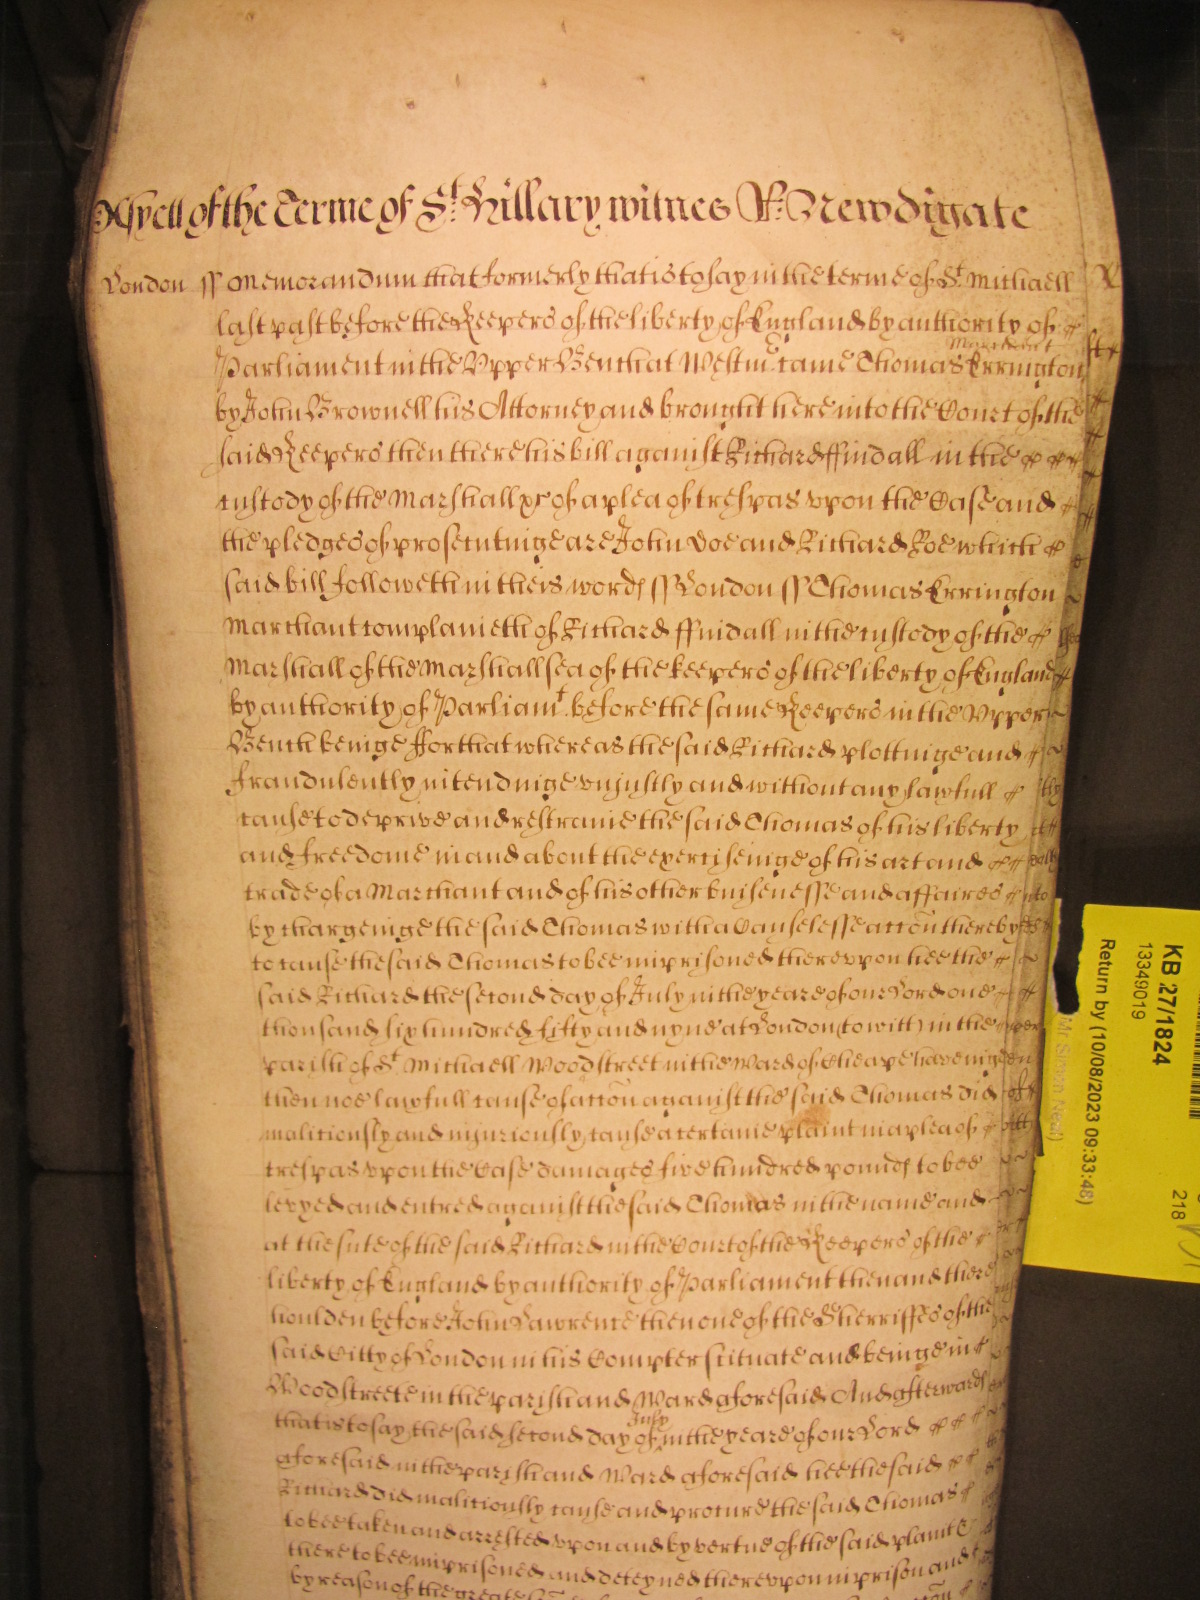 yett of the Terme of St. Hillary witnes R: Newdigate
London ss Memorandum that formerly that is to say in the terme of St Michaell
last past before the Keepers of the liberty of England by authority of
Marchant
Parliament in the Upper Bench at Westm came Thomas Errington
by John Brownell his Attorney and brought here into the Court of the
said Keepers then there his bill against Richard ffindall in the
custody of the Marshall &c of a plea of trespas upon the Case and
the pledges of prosecutinge are John Doe and Richard Roe which
said bill followeth in theis words ss London ss Thomas Errington
Marchant complaineth of Richard ffindall in the custody of the
Marshall of the Marshallsea of the keepers of the liberty of England
by authority of Parliamt before the same Keepers in the Upper
Bench beinge ffor that whereas the said Richard plottinge and
fraudulently intendinge unjustly and without any lawfull
cause to deprive and restraine the said Thomas of his liberty
and freedome in and about the exercisinge of his art and
trade of a Marchant and of his other buisenesse and affaires
by chargeinge the said Thomas with a Causelesse accon thereby
to cause the said Thomas to bee imprisoned thereupon hee the
said Richard the second day of July in the yeare of our Lord one
thousand six hundred fifty and nyne at London (to witt) in the
parish of St Michaell Woodstreet in the Ward of Cheape haveinge
then noe lawfull cause of accon against the said Thomas did
malitiously and injuriously cause a certaine plaint in a plea of
trespas upon the Case damages five hundred pounds to bee
levyed and entred against the said Thomas in the name and
at the sute of the said Richard in the Court of the Keepers of the
liberty of England by authority of Parliament then and there
houlden before John Lawrence then one of the Sherriffes of the
said Citty of London in his Compter scituate and beinge in
Woodstreete in the parish and Ward aforesaid And afterwards
July
that is to say the said second day of in the yeare of our Lord
aforesaid in the parish and Ward aforesaid hee the said
Richard did malitiously cause and procure the said Thomas
to bee taken and arrested upon and by vertue of the said plaint
there to bee imprisoned and deteyned thereupon in prison and
by reason of the greate
KB 27/1824
13349019
Return by (10/08/2023 09:33:48)
218